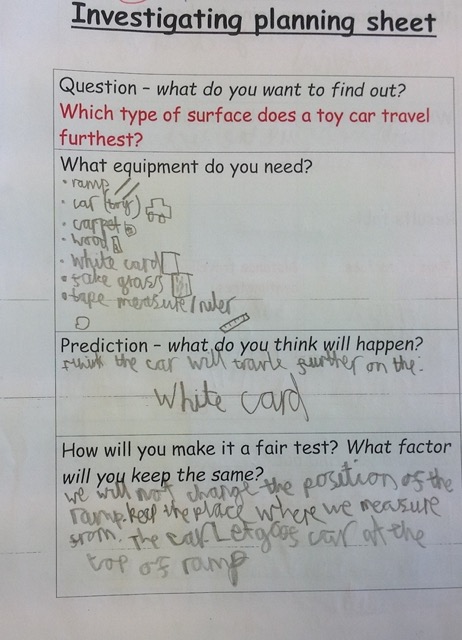 Investigating planning sheet
Question – what do you want to find out?
Which type of surface does a toy car travel
furthest?
What equipment do you need?
• ramp
• car (toy)
• carpet
• wood
• white card
• fake grass
• tape measure/ruler
Prediction – what do you think will happen?
I think the car will travle further on the:
White card
How will you make it a fair test? What factor
will you keep the same?
we will not change the position of the
ramp. keep the place where we measure
from. the car Let goes car at the
top of ramp